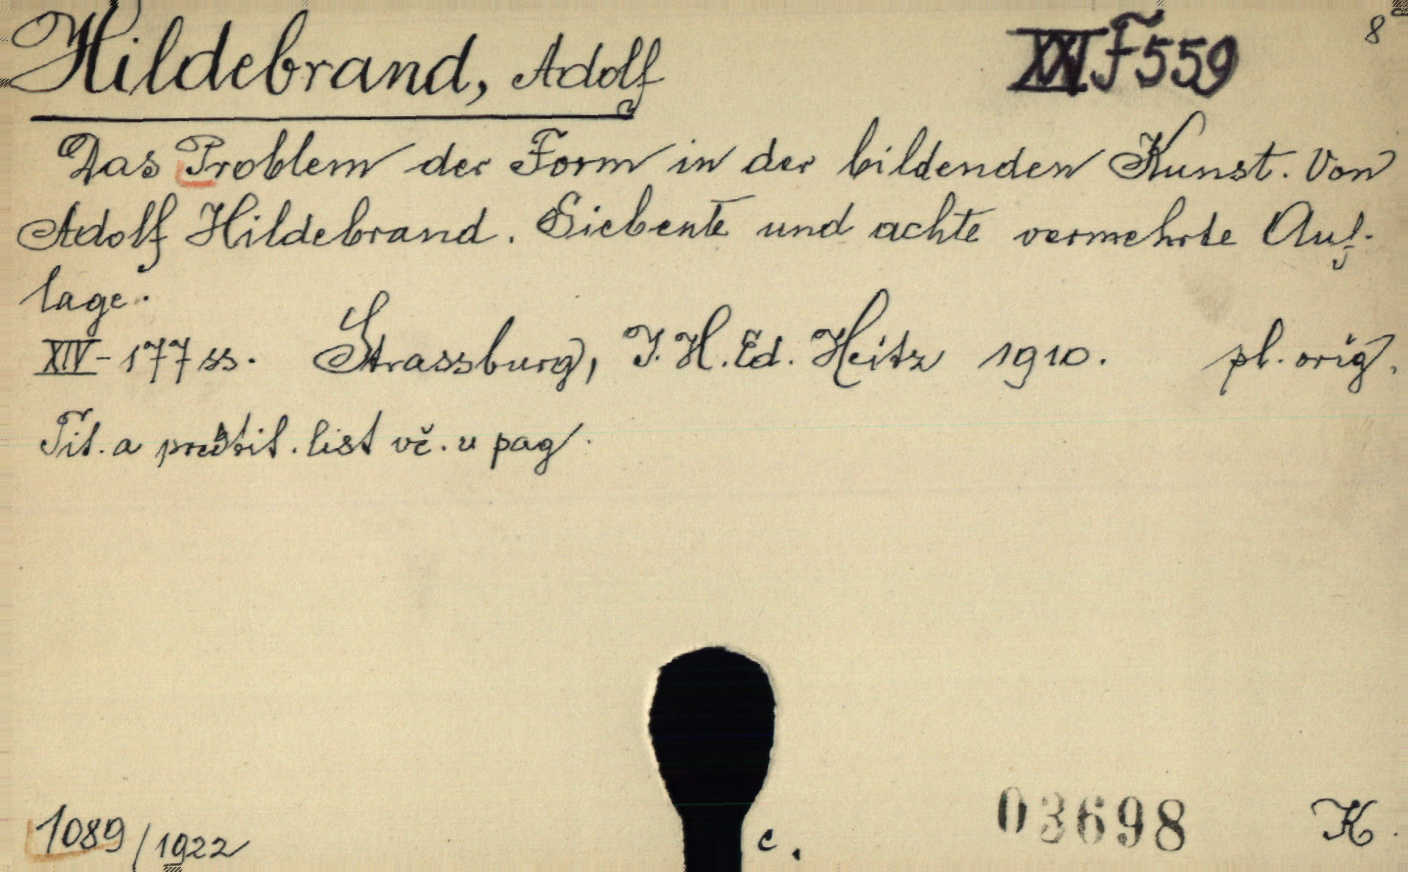 Hildebrand, Adolf XXI F 559 8
Das Problem der Form in der bildenden Kunst. Von
Adolf Hildebrand. Siebente und achte vermehrte Auf-
lage.
XIV-177 ss. Strassburg, J. H. Ed. Heitz 1910. pl. orig.
Tit. a předtit. list vč. u pag.
1089/1922 c. 03698 K.